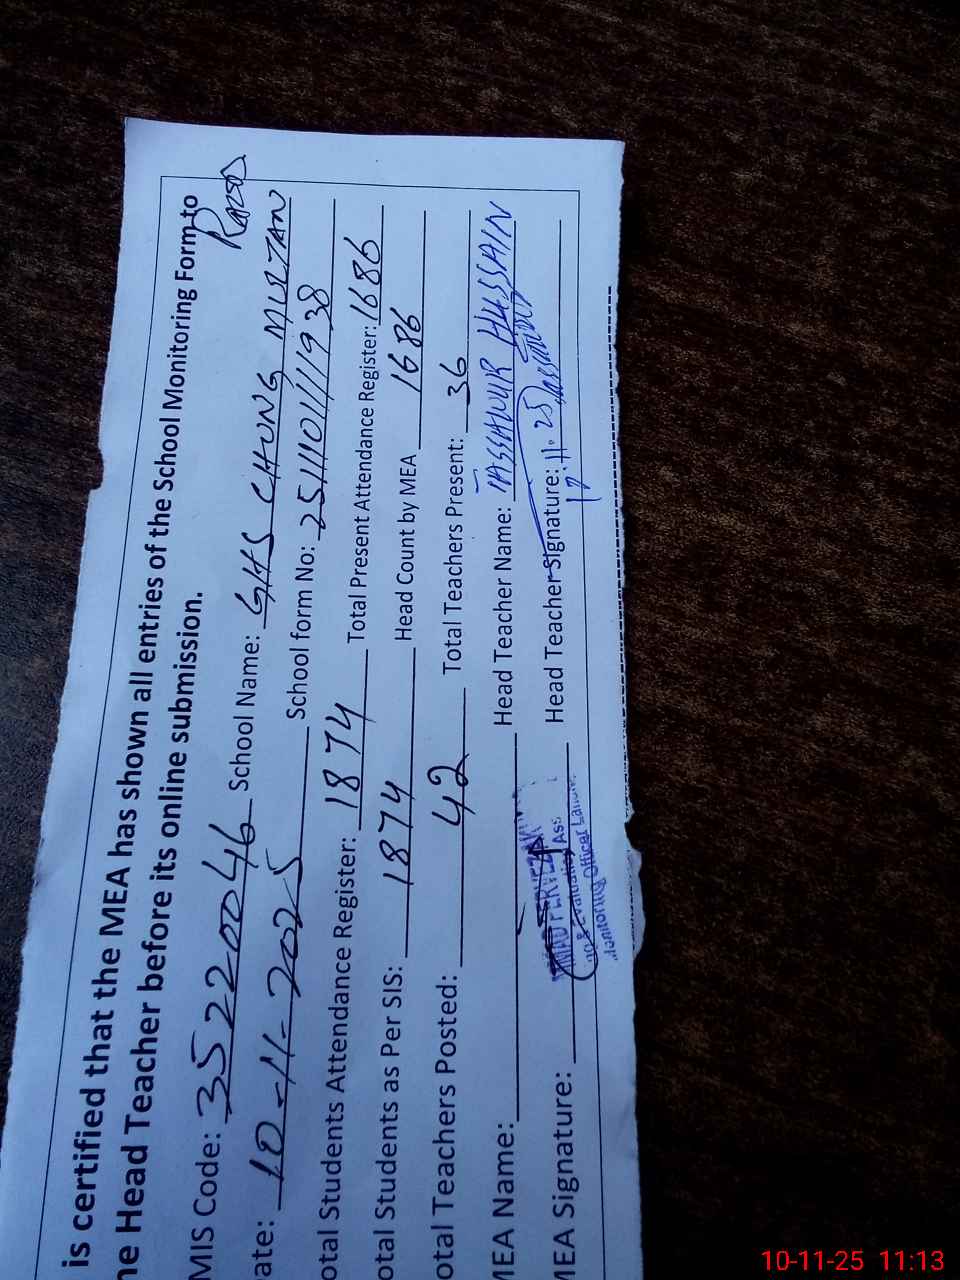 is certified that the MEA has shown all entries of the School Monitoring Form to
he Head Teacher before its online submission.
MIS Code: 35220046 School Name: GHS CHUNG MULTAN
ate: 10-11-2025 School form No:
otal Students Attendance Register: 1874 Total Present Attendance Register: 1686
otal Students as Per SIS: 1874 Head Count by MEA 1686
otal Teachers Posted: 42 Total Teachers Present: 36
MEA Name: Head Teacher Name: TASSAWUR HUSSAIN
MEA Signature: Head Teacher Signature:
Monitoring Officer
10-11-25 11:13